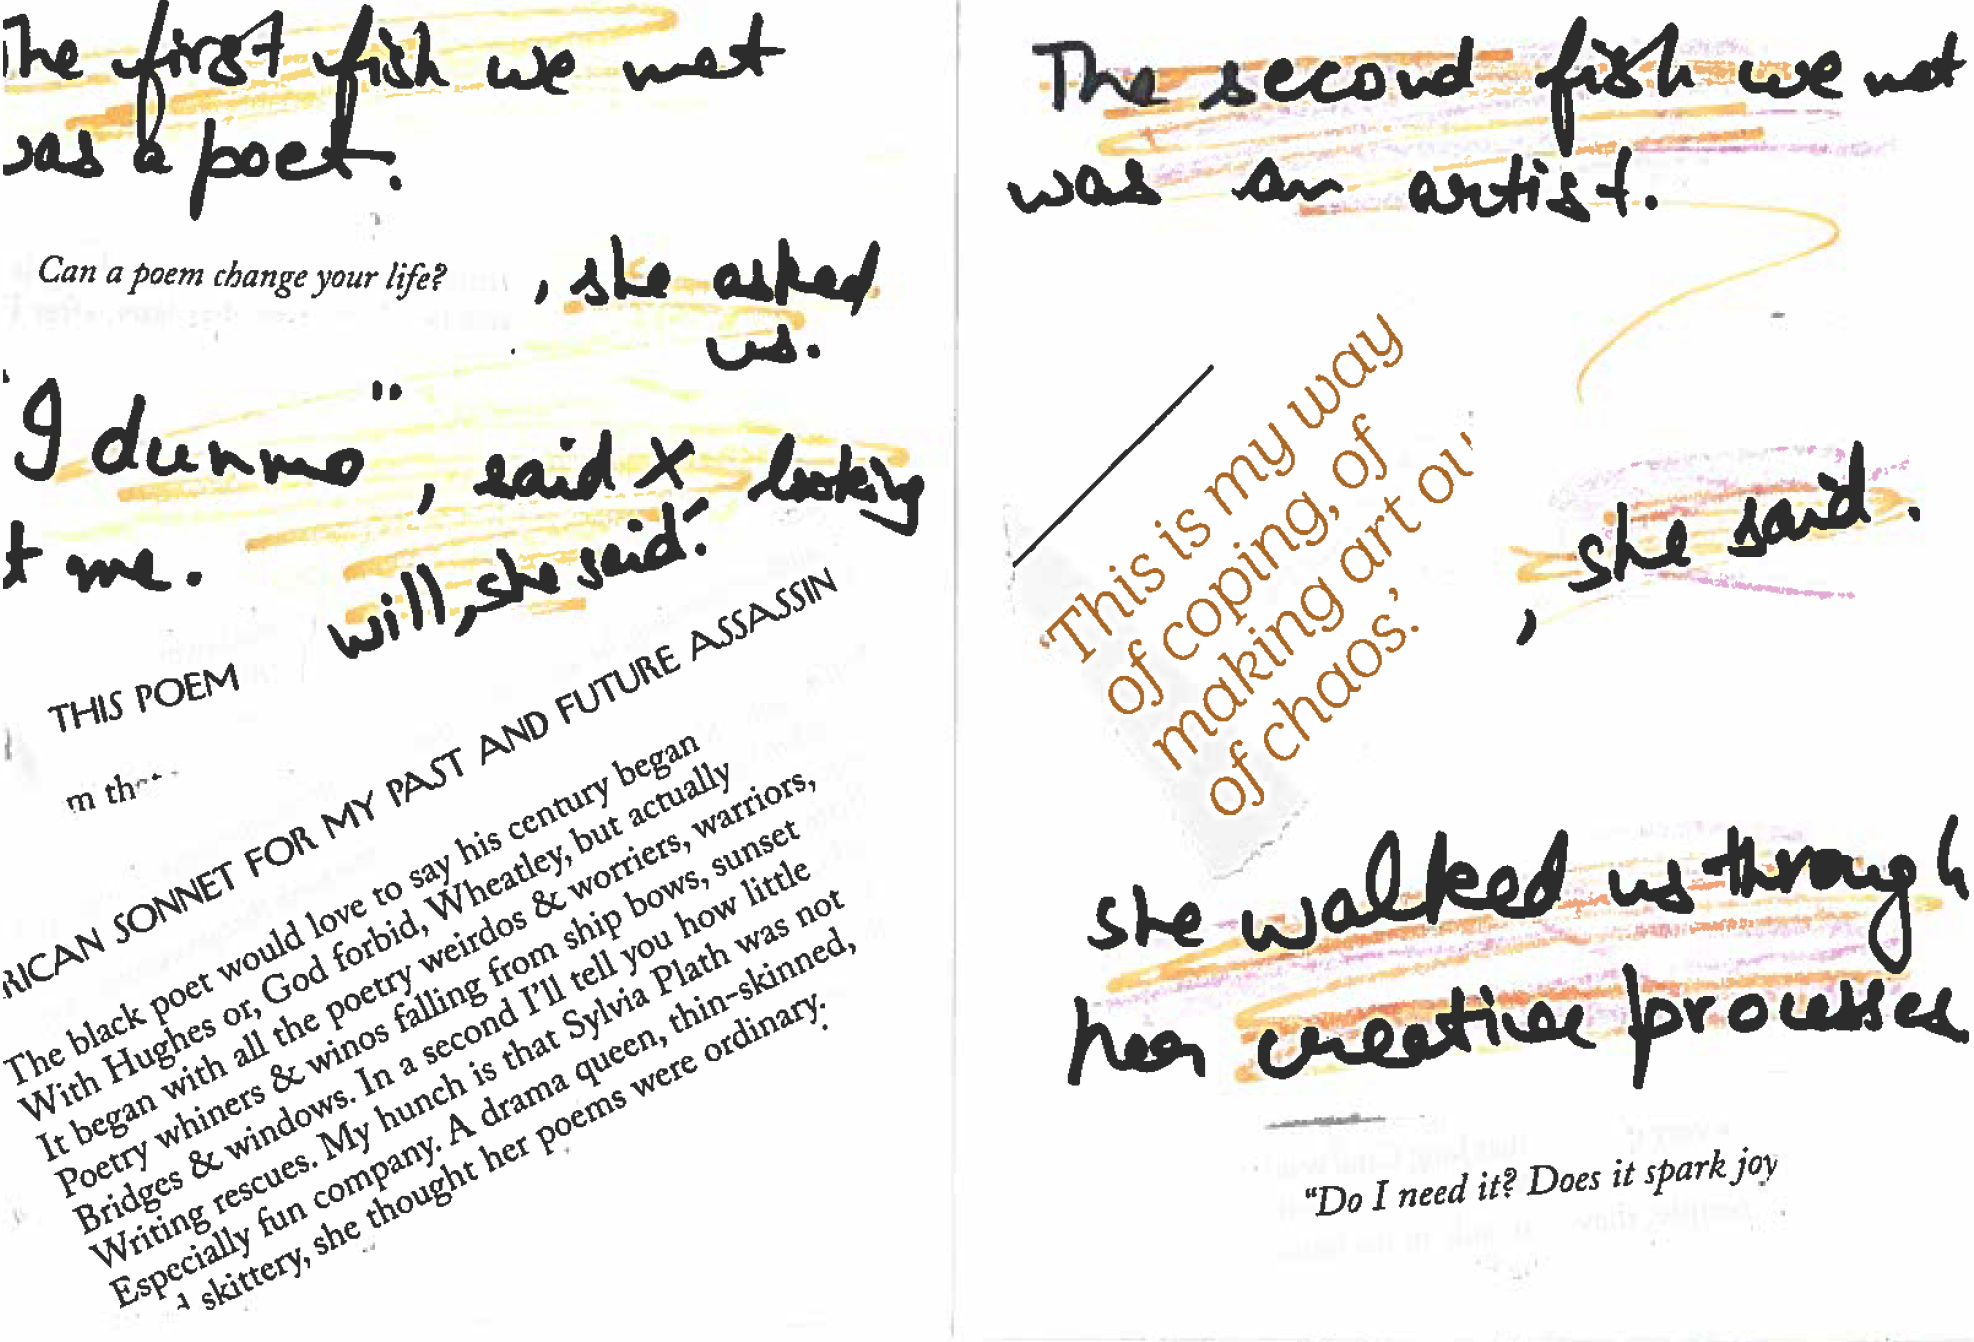 The first fish we met
was a poet.
Can a poem change your life?
, she asked
us.
"I dunno", said X, looking
t me.
THIS POEM
will, she said.
m th
RICAN SONNET FOR MY PAST AND FUTURE ASSASSIN
The black poet would love to say his century began
With Hughes or, God forbid, Wheatley, but actually
It began with all the poetry weirdos & worriers, warriors,
Poetry whiners & winos falling from ship bows, sunset
Bridges & windows. In a second I'll tell you how little
Writing rescues. My hunch is that Sylvia Plath was not
Especially fun company. A drama queen, thin-skinned,
skittery, she thought her poems were ordinary.
The second fish we met
was an artist.
'This is my way
of coping, of
making art ou
of chaos.'
, she said.
she walked us through
her creative processes
"Do I need it? Does it spark joy